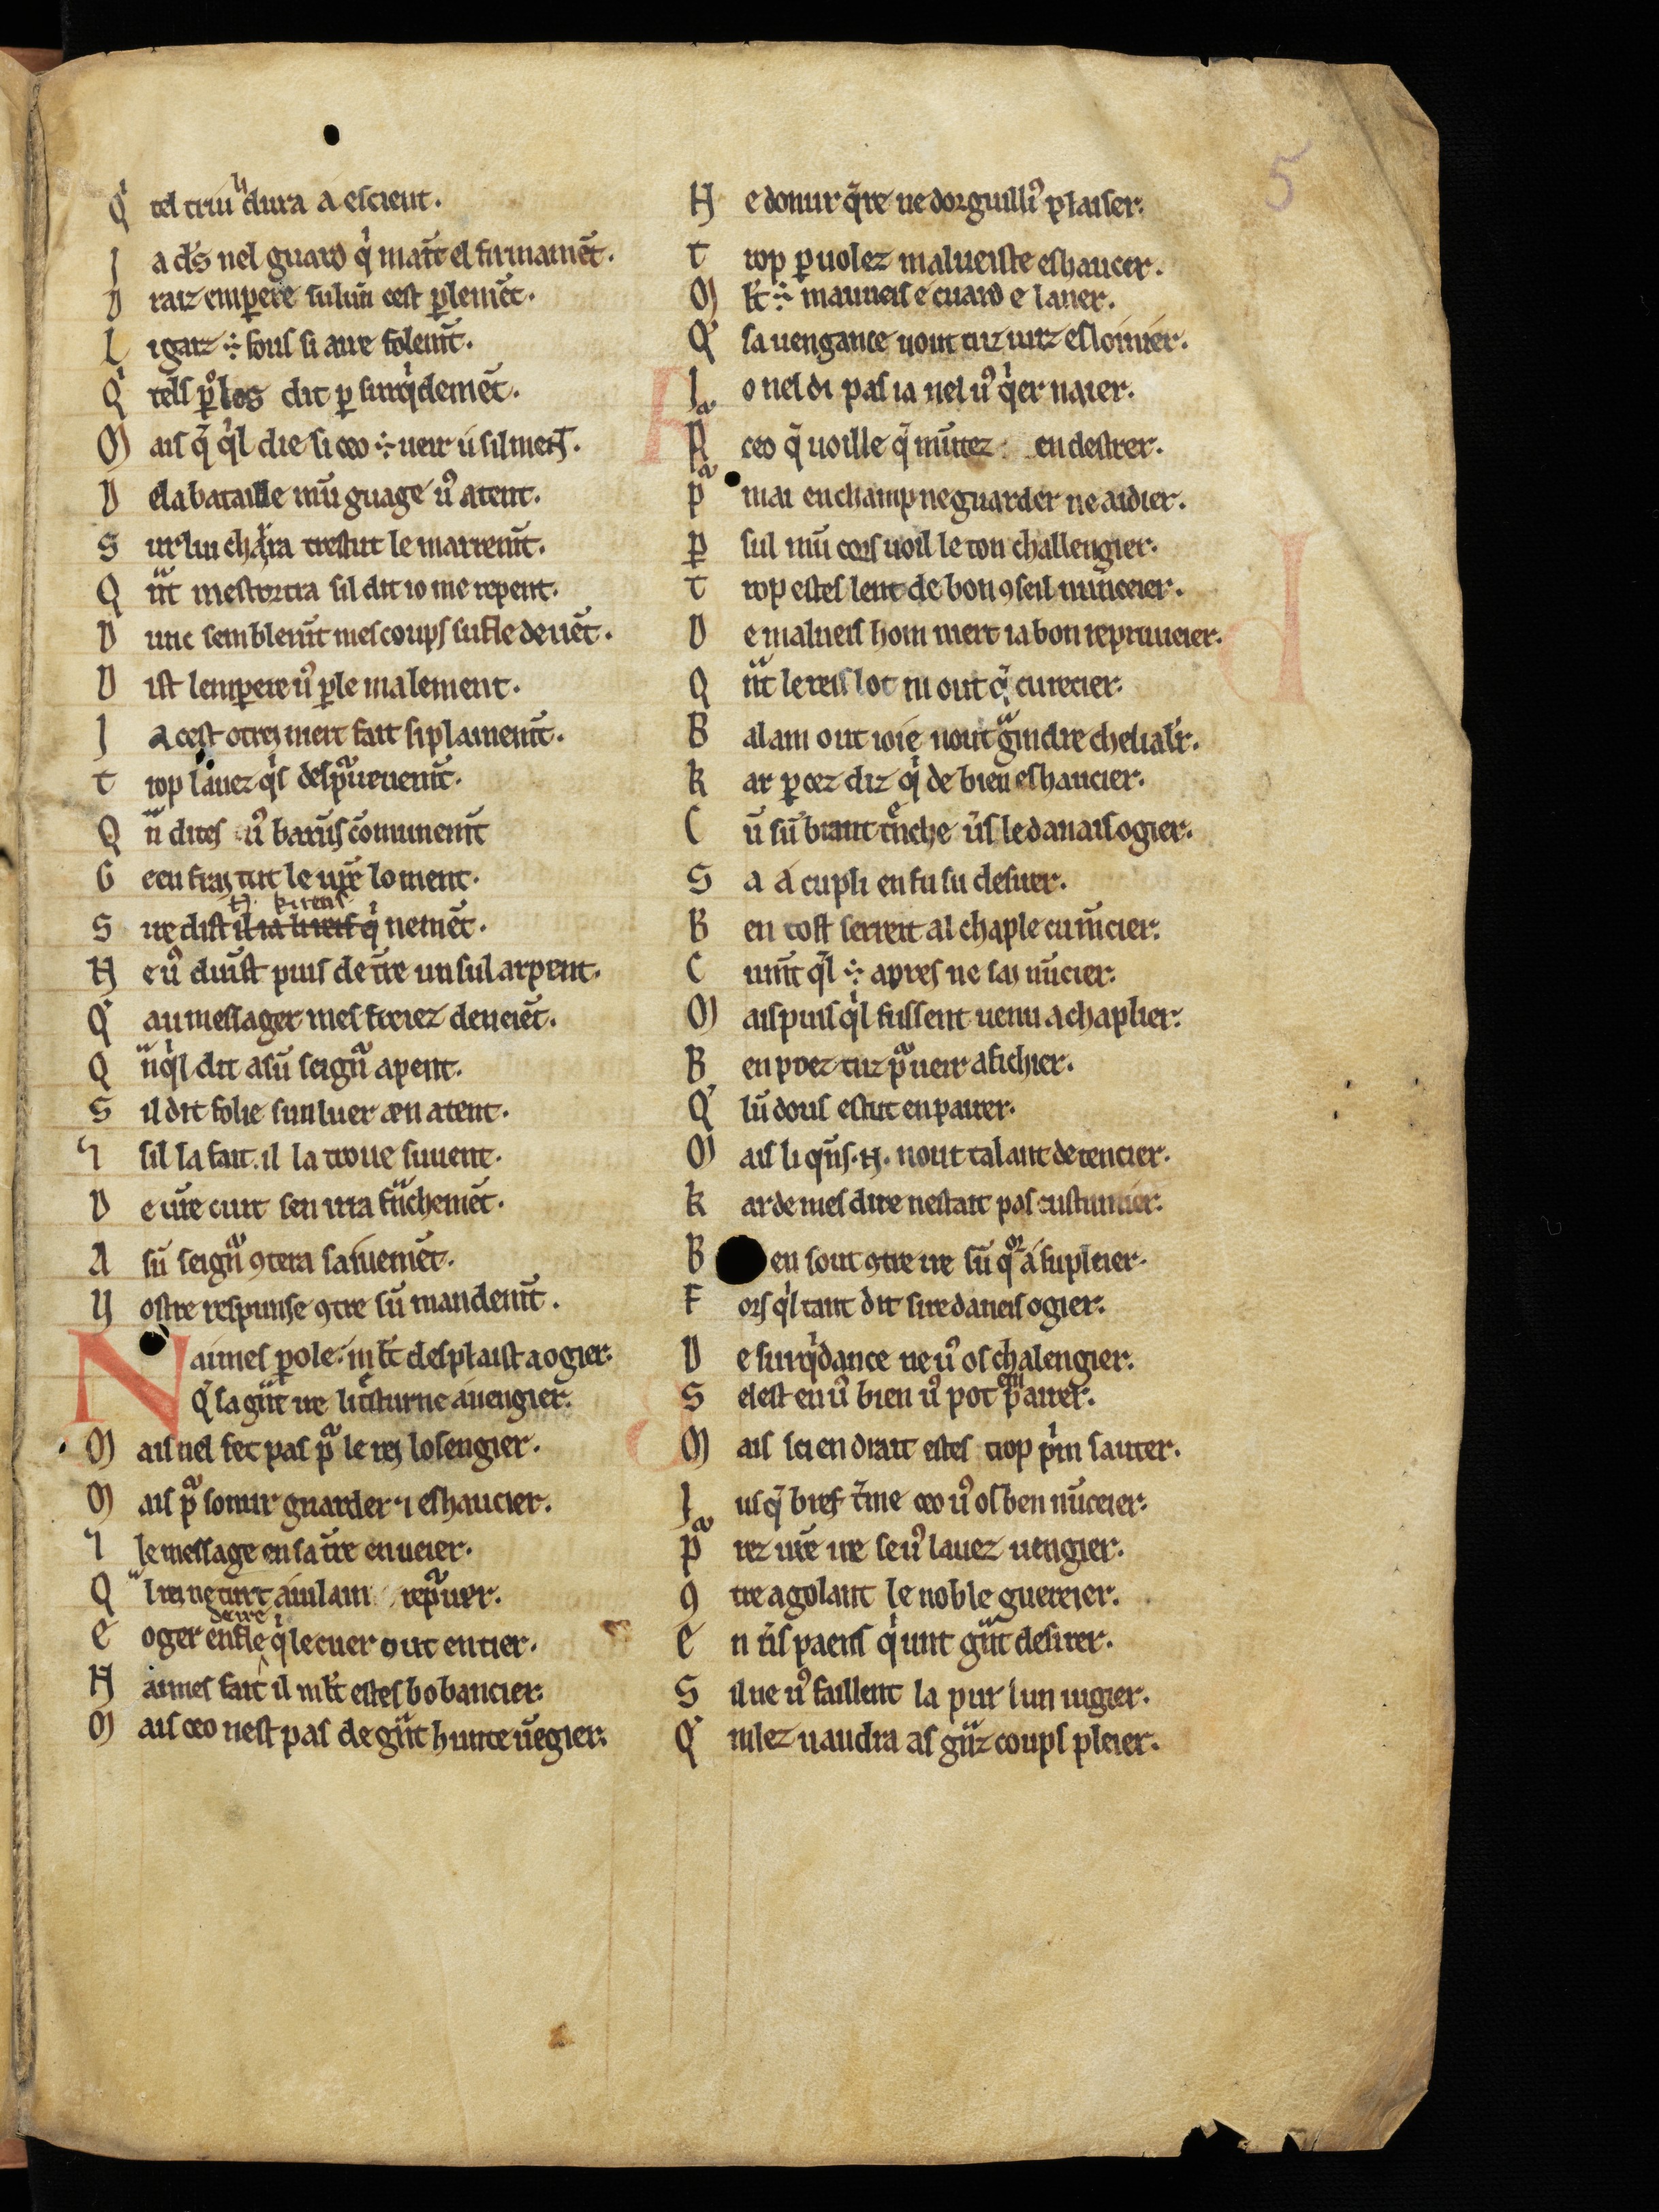 5
Q' tel triuͧ dura a escient.
J a ds̄ nel guard q̍ maīt el firmamēt.
D raiz emꝑere sulun cest ꝑlemēt.
L igarz ⁘ fous si aure folemt̄.
Q' tels ꝑ los dit ꝑ surq̍demēt.
M ais q̄ q̍l die si ceo ⁘ ueir u sil ment.
D ela bataille mū guage uꝰ atent.
S ur lui charra trestut le marremt̄.
Q nt̄ mestorcra sil dit io me repent.
D unc semblerūt mes coups sufle de uēt.
D ist lemꝑere uꝰ ꝑle malement.
J a cest otrei niert fait si plainemt̄.
T rop lauez q̍s desp̄uenemt̄.
Q n̄ dites uꝰ barūs cōmunemt̄
G een frai tut le ur̄e loment.
S ire dist .N. ki rens q̍ nemēt.
N e uꝰ duist puis de tr̄e un sul arpent.
Q' au messager mesfeeriez de neiēt.
Q n̄ q̍l dit a sū seign̄ apent.
S il dit folie sun luer æn atent.
⁊ sil la fait. il la troue suuent.
D e ur̄e curt sen irra fn̄chemēt.
A sū seign̄ ꝯtera sasuemēt.
V ostre respunse ꝯtre sū mandemt̄.
N aimes ꝑole. mlt̄ desplaist a ogier.
Q' sa gn̄t ire lu cēsturne a uengier.
M ais nel fet pas p̄ le rei losengier.
M ais p̄ sonur guarder ⁊ eshaucier.
⁊ le message en sa tr̄e enueier.
Q l rei ne turt a iulam rep̄uer.
E oger enfle deire q̍ le cuer out entier.
N aimes fait il mlt̄ estes bobancier.
M ais ceo nest pas de gn̄t hunte uēgier.
N e donur q̄re ne dorguillꝰ plaiser.
T rop ꝑ uolez malueiste eshaucer.
M lt̄ ⁘ mauueis e cuard e laner.
Q' sa uengance uout tuz iurz esloinier.
J o nel di pas ia nel uꝰ q̍er naier.
P ceo q̄ uoille q̄ mūtez en destrer.
P mai en champ ne guarder ne aidier.
P sul mū cors uoil le ton challengier.
T rop estes lent de bon ꝯseil nunceier.
D e malueis hom niert ia bon repruueier.
Q nt̄ le reis lot ni out q̍ curecier.
B alam out ioie nout gͣindre cheualr̄.
K ar ꝑ cez diz q̍de bien eshaucier.
C ū sū brant tn̄che ūs le danais ogier.
S a a cupli en fu su desuer.
B en tost serreit al chaple cum̄cier.
C umt̄ q̄l ⁘ apres ne sai nūcier.
M ais puis q̍l fussent uenu a chaplier.
B en poez tuz p̄ ueir afichier.
Q' lū dous estut enpairer.
M ais li qn̄s .N. nout talant de tencier.
K ar de mesdire nestait pas custumier.
B en sout ꝯtre ire sū q̄r a supleier.
F ors q̍l tant dit sire daneis ogier.
D e surq̍dance ne uꝰ os chalengier.
S el est en uꝰ bien uꝰ pot enpairer.
M ais sei en drait estes trop p̍m sauter.
J usq̄ bref t̄me ceo uꝰ os ben nūceier.
P rez ur̄e ire se uꝰ lauez uengier.
ꝯ tre agolant le noble guereier.
E n ūs paens q̍ unt gn̄t desirer.
S il ne uꝰ faillent la pur lun iugier.
Q' mlez uaudra as gn̄z coups pleier.